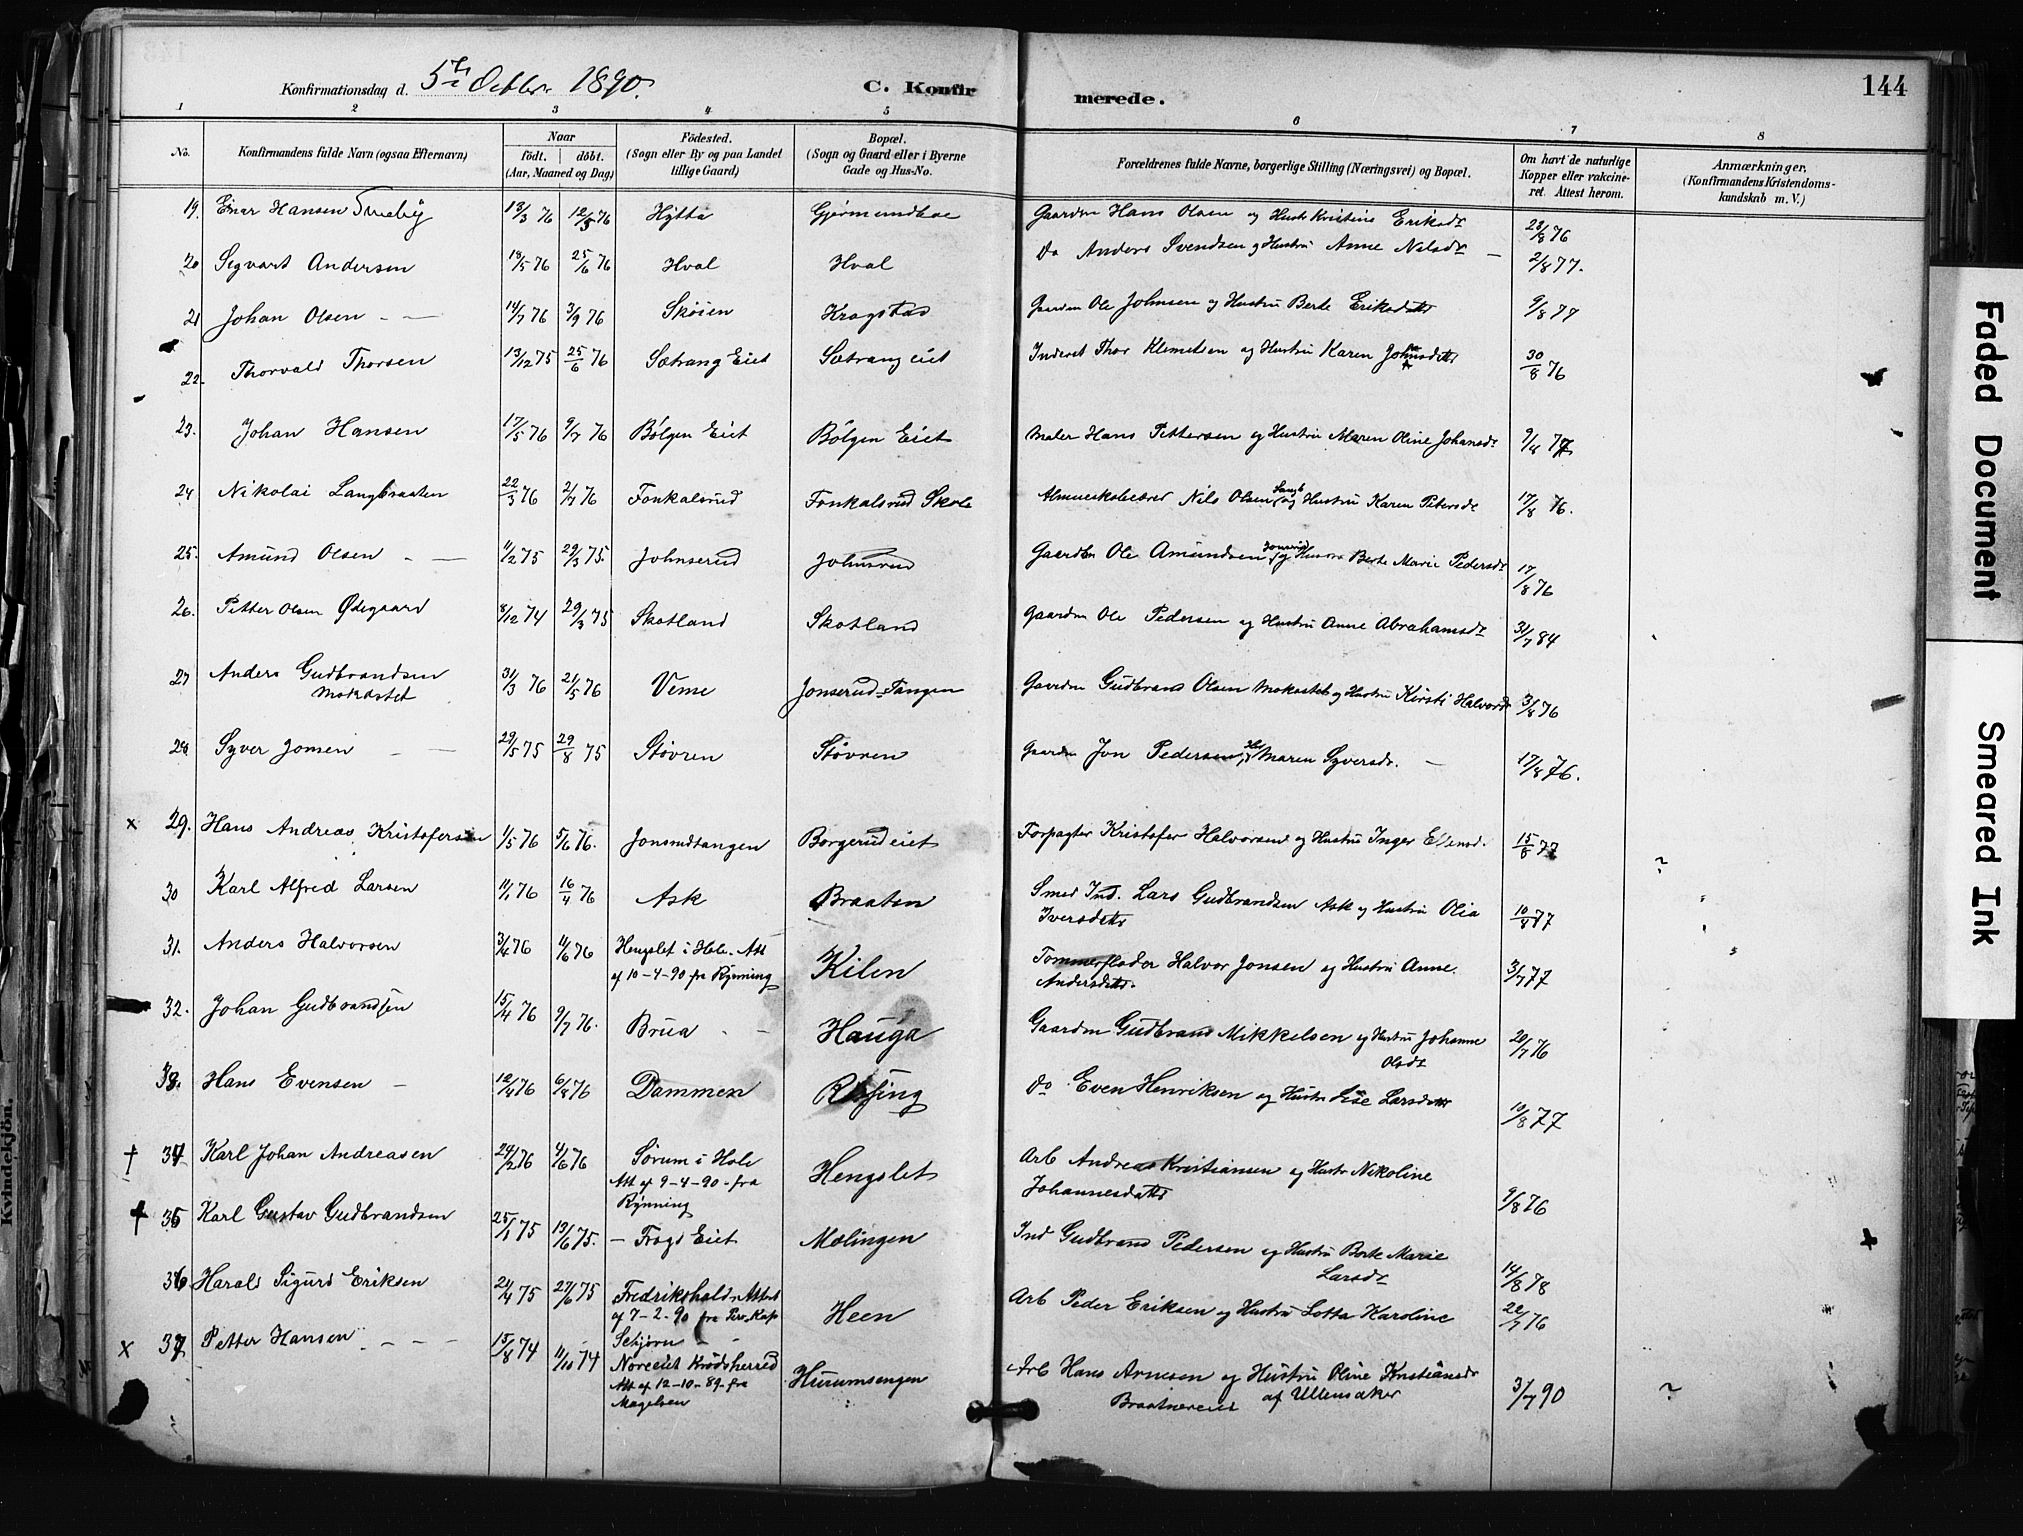 144
Konfirmationsdag d. 5te Octbr 1890.
C. Konfirmerede.
1 2 3 4 5 6 7 8
No. Konfirmandens fulde Navn (ogsaa Efternavn) Naar födt. döbt. (Aar, Maaned og Dag) Födested. (Sogn eller By og paa Landet tillige Gaard) Bopæl. (Sogn og Gaard eller i Byerne Gade og Hus-No. Forældrenes fulde Navne, borgerlige Stilling (Næringsvei) og Bopæl. Om havt de naturlige Kopper eller vakcineret. Attest herom. Anmærkninger, (Konfirmandens Kristendomskundskab m. V.)
19. Einar Hansen Smeby 18/3 76 12/5 76 Hytta Gjermundboe Gaardm Hans Olsen og Hustr Kristine Eriksdr 28/8 76
20 Sigvart Andersen 18/5 76 25/6 76 Hval Hval Do Anders Svendsen og Hustru Anne Nilsdr — 2/8 77.
21 Johan Olsen - — 14/7 76 3/9 76 Sköien Kragstad Gaardm Ole Johnsen og Hustru Berte Eriksdatter 9/8 77
22. Thorvald Thorsen 13/12 75 25/6 76 Sætrang Eiet Sætrang eiet Inderst Thor Klemetsen og Hustru Karen Johnsdatter 30/8 76
23. Johan Hansen 17/5 76 9/7 76 Bölgen Eiet Bölgen Eiet Maler Hans Pettersen og Hustru Maren Oline Johansdr 9/8 77
24 Nikolai Langbraaten 22/3 76 2/7 76 Fonkalsrud Fonkalsrud Skole Almueskolelærer Nils Olsen Langb og Hustru Karen Petersdr 17/8 76.
25. Amund Olsen - — 11/2 75 29/3 75. Johnserud Johnsrud Gaardbr Ole Amundsen Jonsrud og Hustru Berte Marie Pedersdr 17/8 76
26. Petter Olsen Ødegaard 8/12 74 29/3 75 Skotland Skotland Gaardm Ole Pedersen og Hustru Anne Abrahamsdr 31/7 84
27 Anders Gudbrandsen Mokastet 31/3 76 21/5 76 Veme Jonserud-Tangen Gaardm Gudbrand Olsen Mokastet og Hustru Kirsti Halvorsd 3/8 76
28 Syver Jonsen - — 29/5 75 29/8 75 Stövren Stövren Gaardm Jon Pedersen og Maren Syversdr. — 17/8 76.
x 29. Hans Andreas Kristofersen 1/5 76 5/6 76. Jonsrudtangen Borgerud eiet Forpagter Kristofer Halvorsen og Hustru Inger Ellensd. 15/8 77
30 Karl Alfred Larsen 11/1 76 16/4 76 Ask Braaten Smed Ind. Lars Gudbrandsen Ask og Hustru Olia Iversdatter 10/8 77
31. Anders Halvorsen 3/4 76 11/6 76 Hengslet i Hole. Att af 10-4-90 fra Rynning Kilen Tømmerfløder Halvor Jonsen og Hustru Anne Andersdatter. 3/7 77
32. Johan Gudbrandsen 15/4 76 9/7 76. Brua - — Hauga Gaardm Gudbrand Mikkelsen og Hustru Johanne Olsdr 20/7 76
33. Hans Evensen — 12/4 76 6/8 76 Dammen Resjing Do Even Henriksen og Hustr Lise Larsdatter 10/8 77
† 34 Karl Johan Andreasen 24/2 76 4/6 76 Sörum i Hole Att af 9-4-90-fra Rynning Hengslet Arb Andreas Kristiansen og Hustr Nikoline Johannesdatter 9/8 76
† 35 Karl Gustav Gudbrandsen 25/1 75 13/6 75. — Frogs Eiet Mælingen Ind Gudbrand Pedersen og Hustru Berte Marie Larsdr 14/8 78
36 Harald Sigurd Eriksen 21/4 75 27/6 75 Fredrikshald. Attest af 7-2-90 fra Heen Arb Peder Eriksen og Hustru Lotta Karoline 22/7 76
x 37 Petter Hansen - - — 15/8 74 11/10 74 Noreeiet Krödsherred Att af 12-10-89-fra Magelsen Hurumsengen Arb Hans Arnesen og Hustru Oline Kristiansdr af Ullensaker Braatnereiet 31/7 90
Faded Document
Smeared Ink
Kvindekjön.